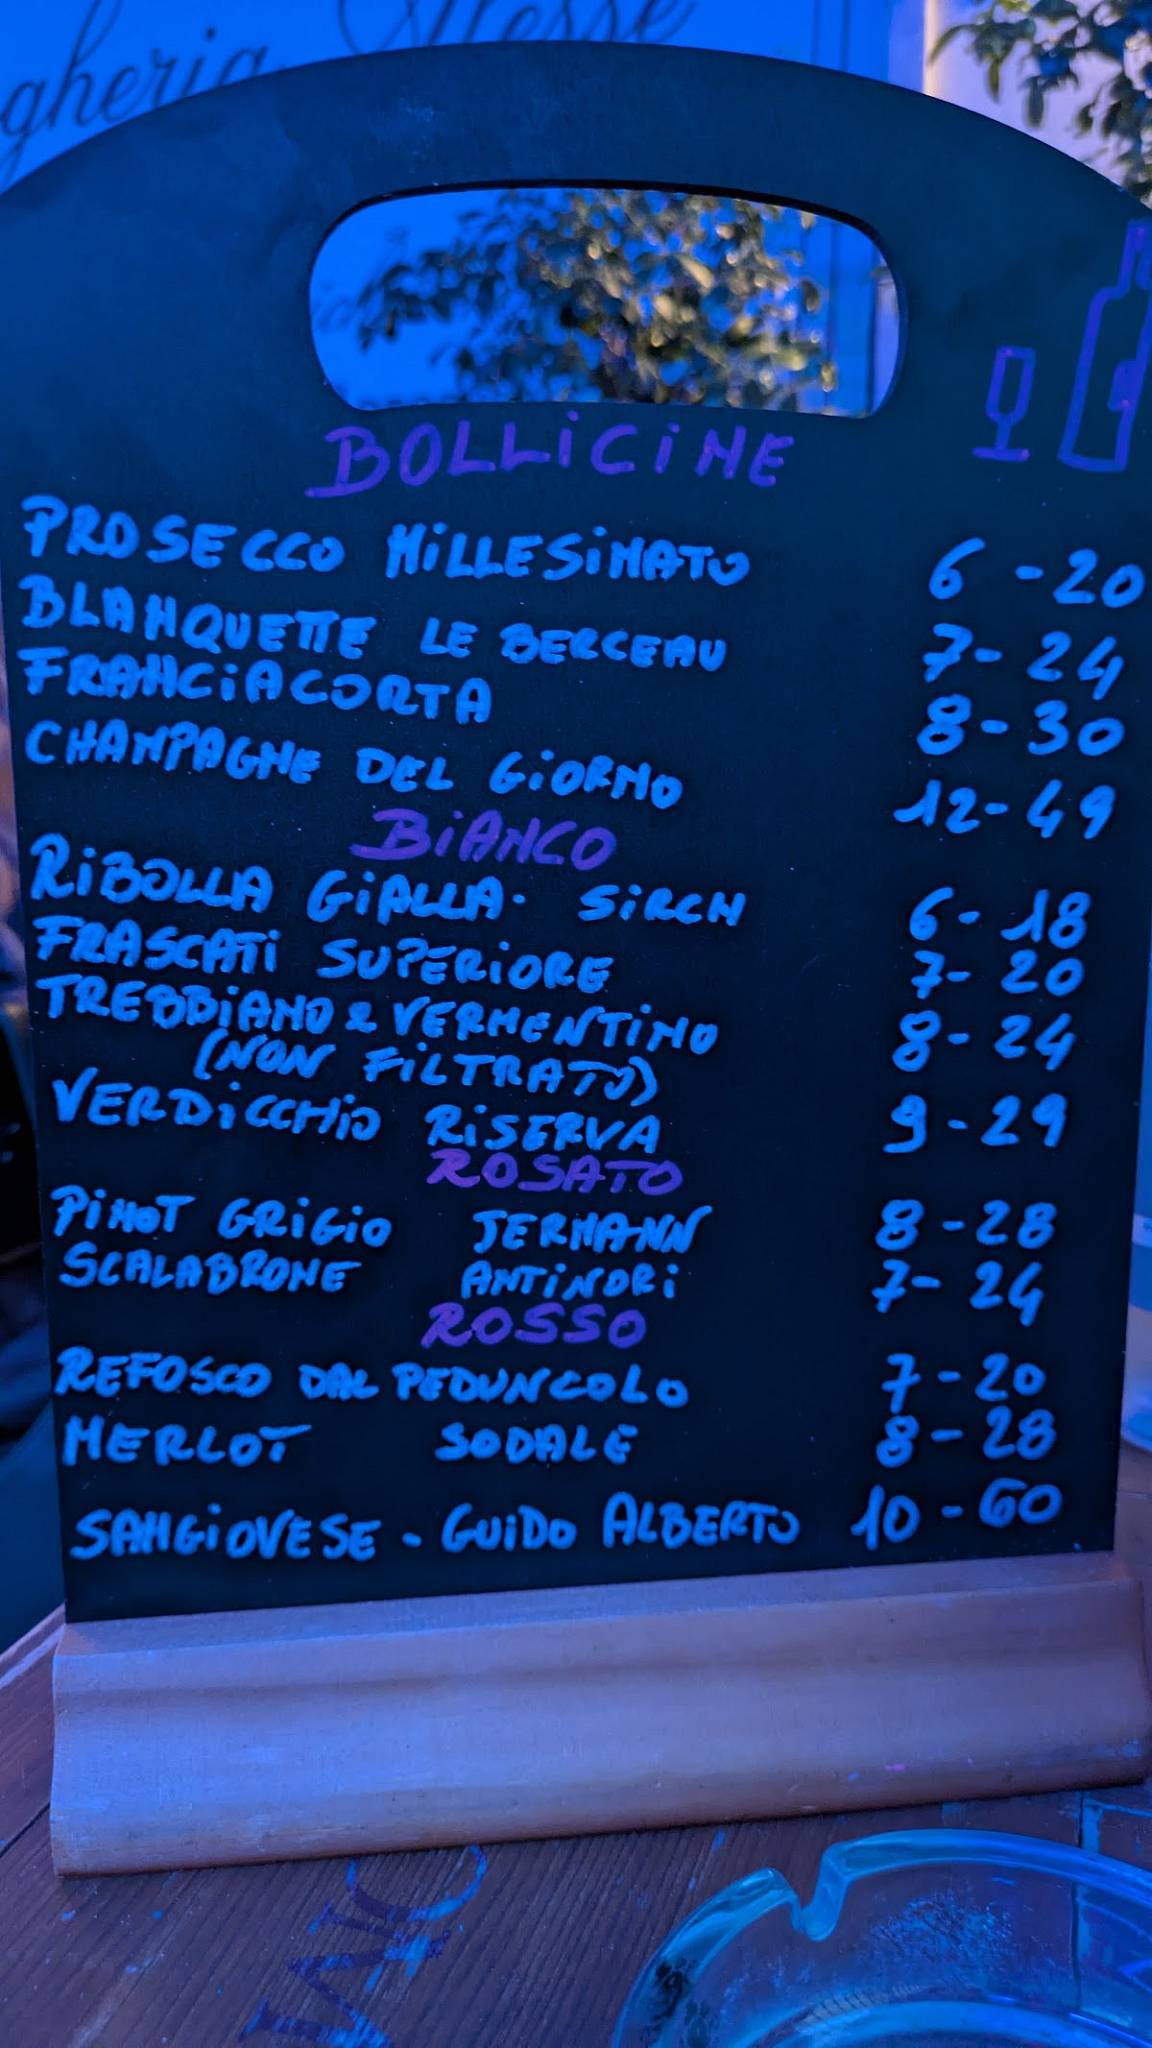 gheria Messe
BOLLiCiNE
PROSECCO MiLLESiMATO 6 - 20
BLANQUETTE LE BERCEAU 7 - 24
FRANCiACORTA 8 - 30
CHAMPAGNE DEL GiORNO 12 - 49
BiANCO
RiBOLLA GiALLA · SiRCH 6 - 18
FRASCATi SUPERiORE 7 - 20
TREBBiANO & VERMENTiNO 8 - 24
(NON FiLTRATO)
VERDiCCHiO RiSERVA 9 - 29
ROSATO
PiNOT GRiGiO JERMANN 8 - 28
SCALABRONE ANTiNORi 7 - 24
ROSSO
REFOSCO DAL PEDUNCOLO 7 - 20
MERLOT SODALE 8 - 28
SANGiOVESE - GUiDO ALBERTO 10 - 60